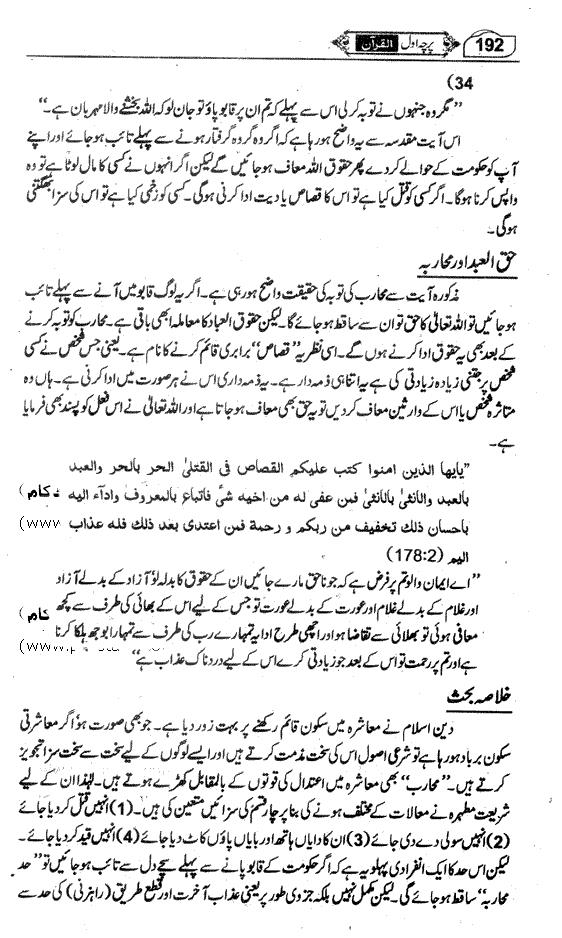 192 پرچہ اول القرآن
34)
”مگر وہ جنہوں نے توبہ کر لی اس سے پہلے کہ تم ان پر قابو پاؤ تو جان لو کہ اللہ بخشنے والا مہربان ہے۔“
اس آیت مقدسہ سے یہ واضح ہو رہا ہے کہ اگر وہ گروہ گرفتار ہونے سے پہلے تائب ہو جائے اور اپنے
آپ کو حکومت کے حوالے کر دے پھر حقوق اللہ معاف ہو جائیں گے لیکن اگر انہوں نے کسی کا مال لوٹا ہے تو وہ
واپس کرنا ہوگا۔ اگر کسی کو قتل کیا ہے تو اس کا قصاص یا دیت ادا کرنی ہوگی۔ کسی کو زخمی کیا ہے تو اس کی سزا بھگتنی
ہوگی۔
حق العبد اور محاربہ
مذکورہ آیت سے محارب کی توبہ کی حقیقت واضح ہو رہی ہے۔ اگر یہ لوگ قابو میں آنے سے پہلے تائب
ہو جائیں تو اللہ تعالیٰ کا حق تو ان سے ساقط ہو جائے گا۔ لیکن حقوق العباد کا معاملہ ابھی باقی ہے۔ محارب کو توبہ کرنے
کے بعد بھی یہ حقوق ادا کرنے ہوں گے۔ اسی نظریہ ”قصاص“ برابری قائم کرنے کا نام ہے۔ یعنی جس شخص نے کسی
شخص پر جتنی زیادہ زیادتی کی ہے یہ اتنا ہی ذمہ دار ہے۔ یہ ذمہ داری اس نے ہر صورت میں ادا کرنی ہے۔ ہاں وہ
متاثرہ شخص یا اس کے وارثین معاف کر دیں تو یہ حق بھی معاف ہو جاتا ہے اور اللہ تعالیٰ نے اس فعل کو پسند بھی فرمایا
ہے۔
”یایھا الذین امنوا کتب علیکم القصاص فی القتلیٰ الحر بالحر والعبد
بالعبد والانثیٰ بالانثیٰ فمن عفی لہ من اخیہ شیٔ فاتباع بالمعروف واداٰء الیہ کام)
باحسان ذلک تخفیف من ربکم و رحمۃ فمن اعتدی بعد ذلک فلہ عذاب www)
الیم (178:2)
”اے ایمان والو تم پر فرض ہے کہ جو ناحق مارے جائیں ان کے حقوق کا بدلہ لو آزاد کے بدلے آزاد
اور غلام کے بدلے غلام اور عورت کے بدلے عورت تو جس کے لیے اس کے بھائی کی طرف سے کچھ کام)
معافی ہوئی تو بھلائی سے تقاضا ہو اور اچھی طرح ادا یہ تمہارے رب کی طرف سے تمہارا بوجھ ہلکا کرنا www.)
ہے اور تم پر رحمت تو اس کے بعد جو زیادتی کرے اس کے لیے دردناک عذاب ہے“
خلاصہ بحث
دین اسلام نے معاشرہ میں سکون قائم رکھنے پر بہت زور دیا ہے۔ جو بھی صورت ہو اگر معاشرتی
سکون برباد ہو رہا ہے تو شرعی اصول اس کی سخت مذمت کرتے ہیں اور ایسے لوگوں کے لیے سخت سے سخت سزا تجویز
کرتے ہیں۔ ”محارب“ بھی معاشرہ میں اعتدال کی قوتوں کے بالمقابل کھڑے ہوتے ہیں۔ لہٰذا ان کے لیے
شریعت مطہرہ نے معاملات کے مختلف ہونے کی بنا پر چار قسم کی سزائیں متعین کی ہیں۔ (1) انہیں قتل کر دیا جائے
(2) انہیں سولی دے دی جائے (3) ان کا دایاں ہاتھ اور بایاں پاؤں کاٹ دیا جائے (4) انہیں قید کر دیا جائے۔
لیکن اس حد کا ایک انفرادی پہلو یہ ہے کہ اگر حکومت کے قابو پانے سے پہلے سچے دل سے تائب ہو جائیں تو ”حد
محاربہ“ ساقط ہو جائے گی۔ لیکن مکمل نہیں بلکہ جزوی طور پر یعنی عذاب آخرت اور قطع طریق (راہزنی) کی حد سے